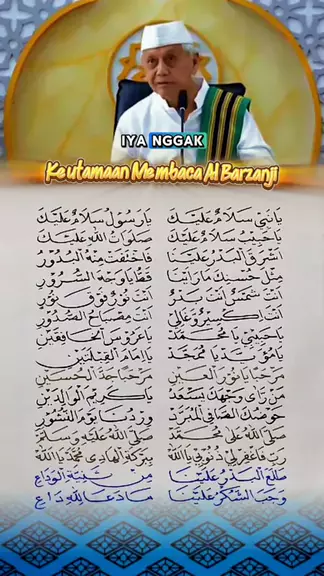 IYA NGGAK
Keutamaan Membaca Al Barzanji
يَا نَبِي سَلَامٌ عَلَيْكَ يَا رَسُوْلْ سَلَامٌ عَلَيْكَ
يَا حَبِيْبْ سَلَامٌ عَلَيْكَ صَلَوَاتُ اللّٰهْ عَلَيْكَ
اَشْرَقَ الْبَدْرُ عَلَيْنَا فَاخْتَفَتْ مِنْهُ الْبُدُوْرُ
مِثْلَ حُسْنِكْ مَا رَاَيْنَا قَطُّ يَا وَجْهَ السُّرُوْرِ
اَنْتَ شَمْسٌ اَنْتَ بَدْرٌ اَنْتَ نُوْرٌ فَوْقَ نُوْرٍ
اَنْتَ اِكْسِيْرٌ وَغَالِي اَنْتَ مِصْبَاحُ الصُّدُوْرِ
يَا حَبِيْبِي يَا مُحَمَّدْ يَا عَرُوْسَ الْخَافِقَيْنِ
يَا مُؤَيَّدْ يَا مُمَجَّدْ يَا اِمَامَ الْقِبْلَتَيْنِ
مَرْحَبًا يَا نُوْرَ الْعَيْنِ مَرْحَبًا جَدَّ الْحُسَيْنِ
مَنْ رَاَى وَجْهَكَ يَسْعَدْ يَا كَرِيْمَ الْوَالِدَيْنِ
حَوْضُكَ الصَّافِي الْمُبَرَّدْ وِرْدُنَا يَوْمَ النُّشُوْرِ
صَلَّى اللّٰهُ عَلَى مُحَمَّدْ صَلَّى اللّٰهُ عَلَيْهِ وَسَلَّمْ
رَبِّ فَاغْفِرْلِي ذُنُوْبِي يَا اللّٰه بِبَرَكَةِ الْهَادِي مُحَمَّدْ يَا اللّٰه
طَلَعَ الْبَدْرُ عَلَيْنَا مِنْ ثَنِيَّةِ الْوَدَاعِ
وَجَبَ الشُّكْرُ عَلَيْنَا مَا دَعَا لِلّٰهِ دَاعٍ